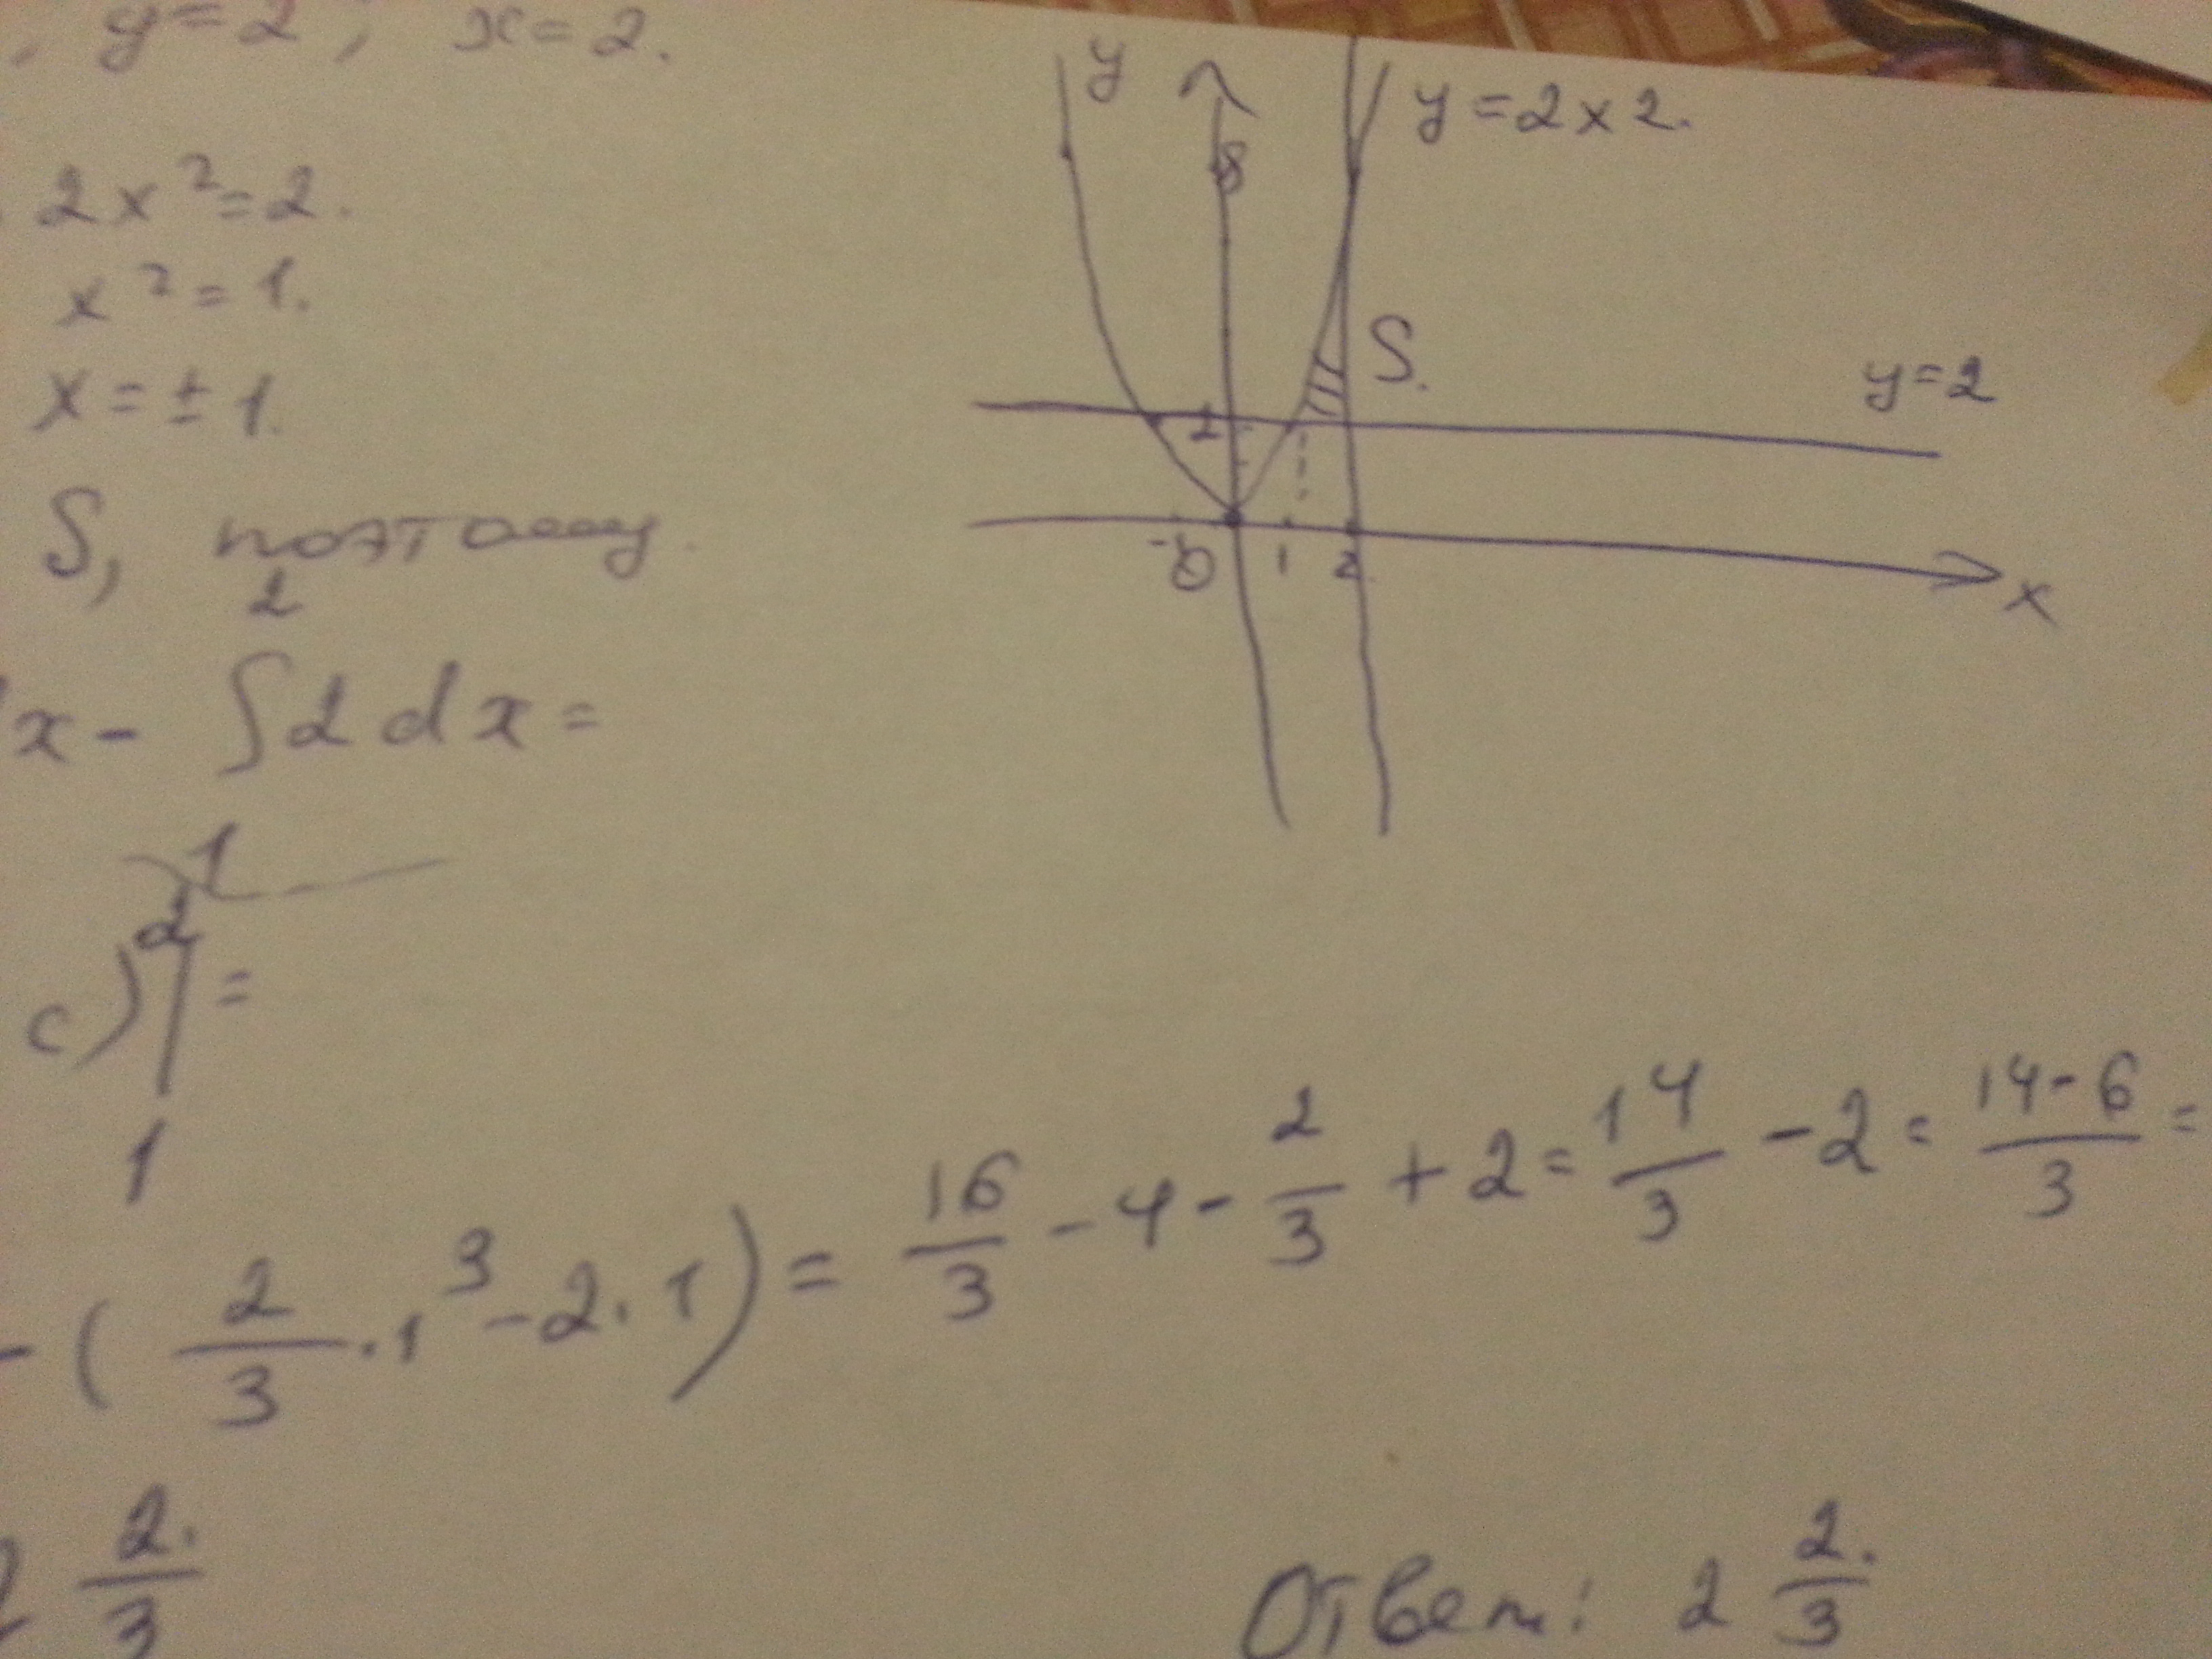 , y=2; x=2.
2x²=2.
x²=1.
x=±1.
S, поэтому
2
x- ∫2dx=
1
c)|² =
1
-(2/3·1³-2·1)=16/3-4-2/3+2=14/3-2=(14-6)/3=
2/3.
Ответ: 2 2/3.
y
8
y=2x2.
S.
y=2
2
0 1 2
x